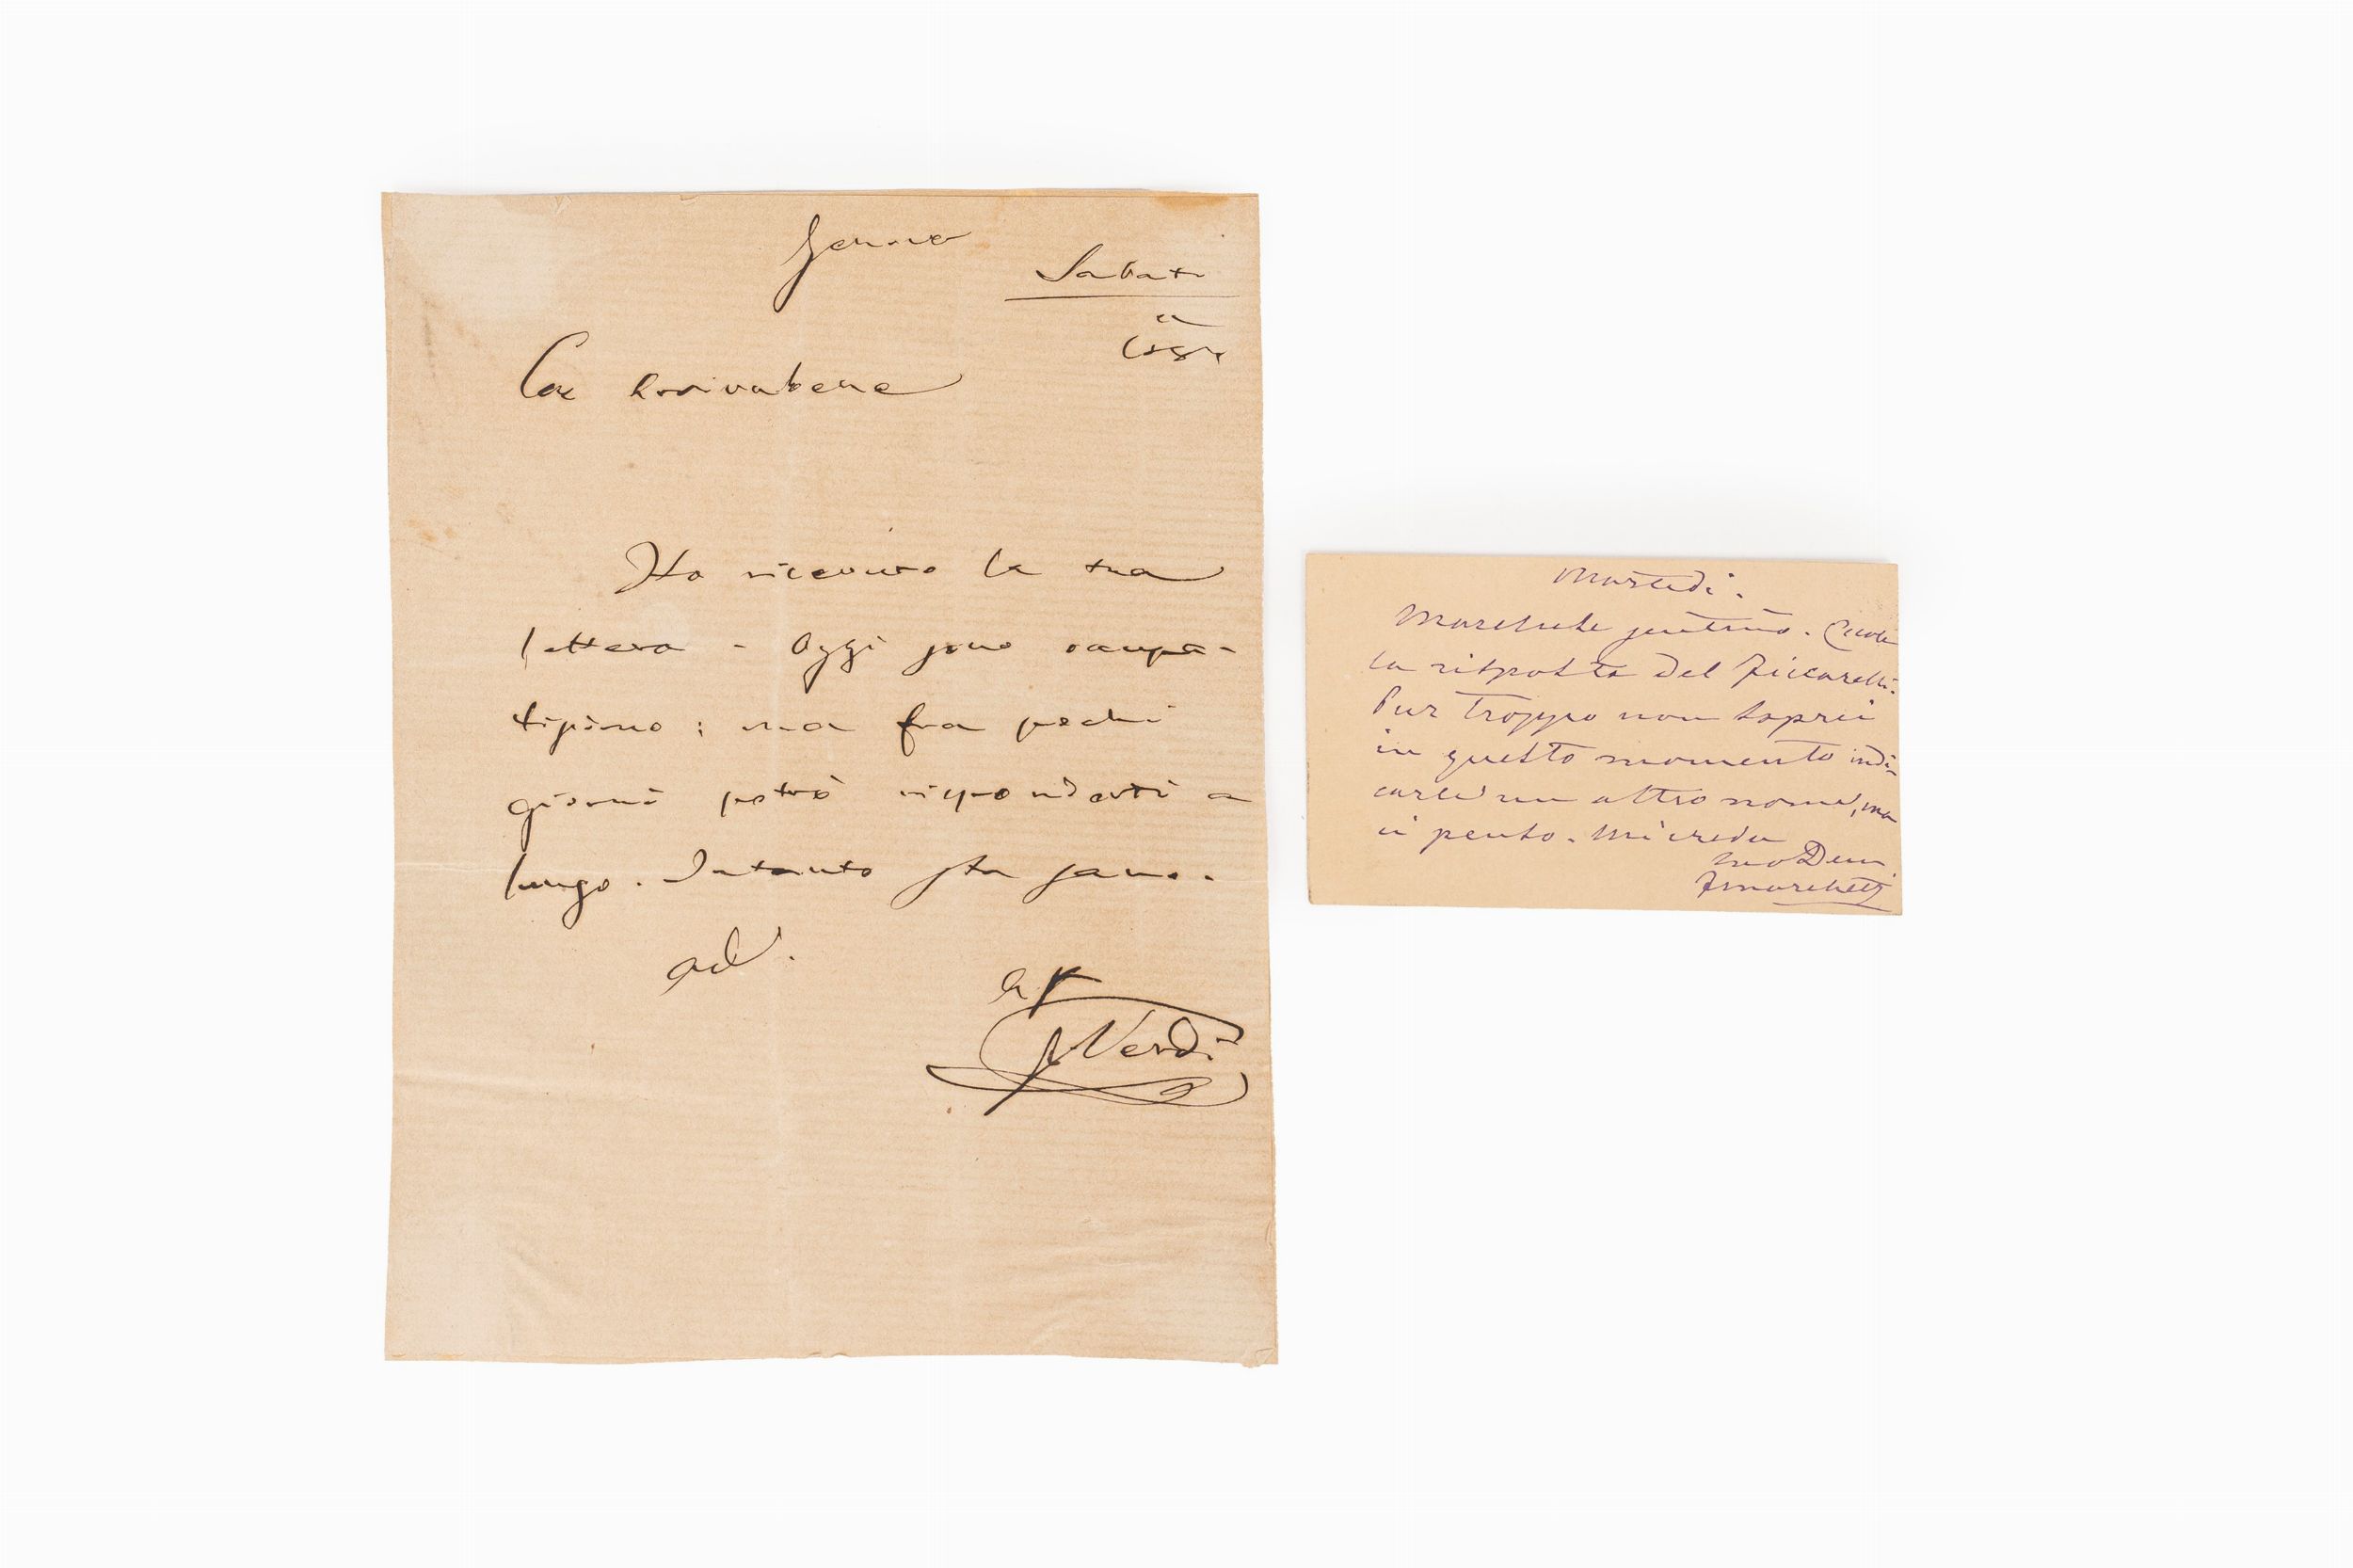 Genova
Sabato
Car Arrivabene
Ho ricevuto la tua
lettera - Oggi sono occupa-
tissimo: ma fra pochi
giorni potrò risponderti a
lungo. Intanto sta sano.
ad.
G Verdi
Martedì.
Marchese gentilmo. Eccole
la risposta del Ficcarelli.
Pur troppo non saprei
in questo momento indi-
carle un altro nome, ma
ci penso. Mi creda
suo Dev
FMarchetti